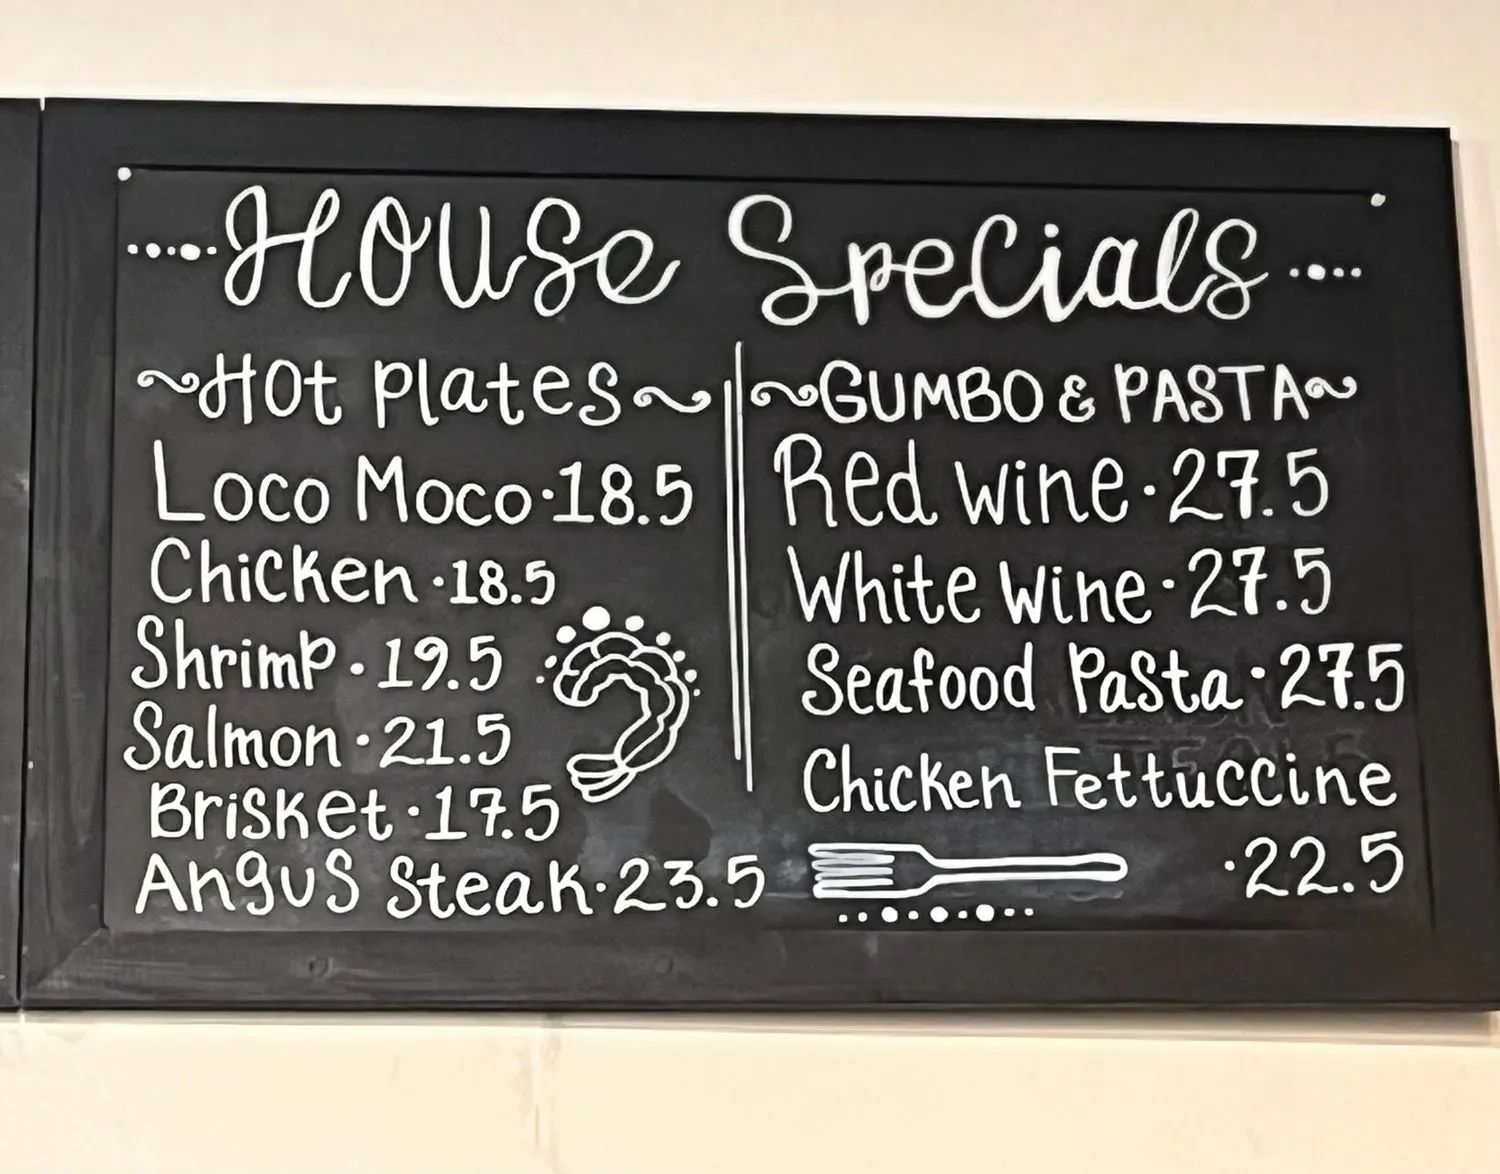 House Specials
Hot Plates
Loco Moco · 18.5
Chicken · 18.5
Shrimp · 19.5
Salmon · 21.5
Brisket · 17.5
Angus Steak · 23.5
GUMBO & PASTA
Red Wine · 27.5
White Wine · 27.5
Seafood Pasta · 27.5
Chicken Fettuccine
· 22.5